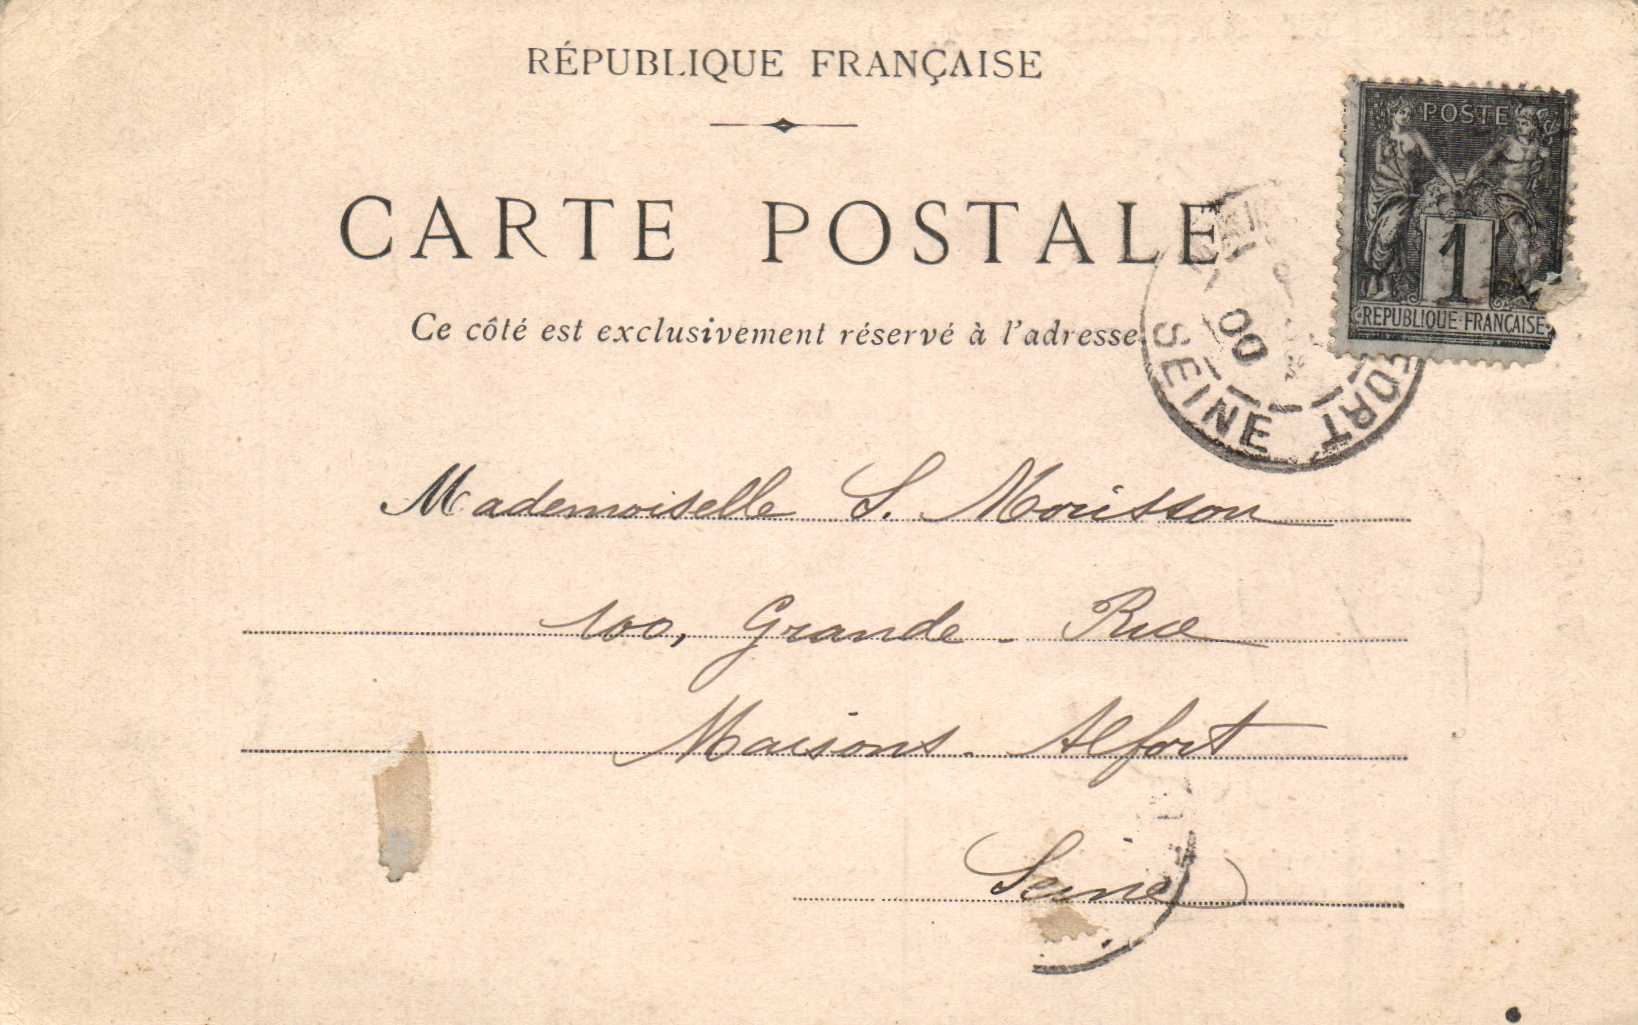 RÉPUBLIQUE FRANÇAISE
CARTE POSTALE
Ce côté est exclusivement réservé à l'adresse
POSTE
1
REPUBLIQUE FRANÇAISE
00
SEINE
FORT
Mademoiselle S. Morisson
100, Grande - Rue
Maisons - Alfort
Seine